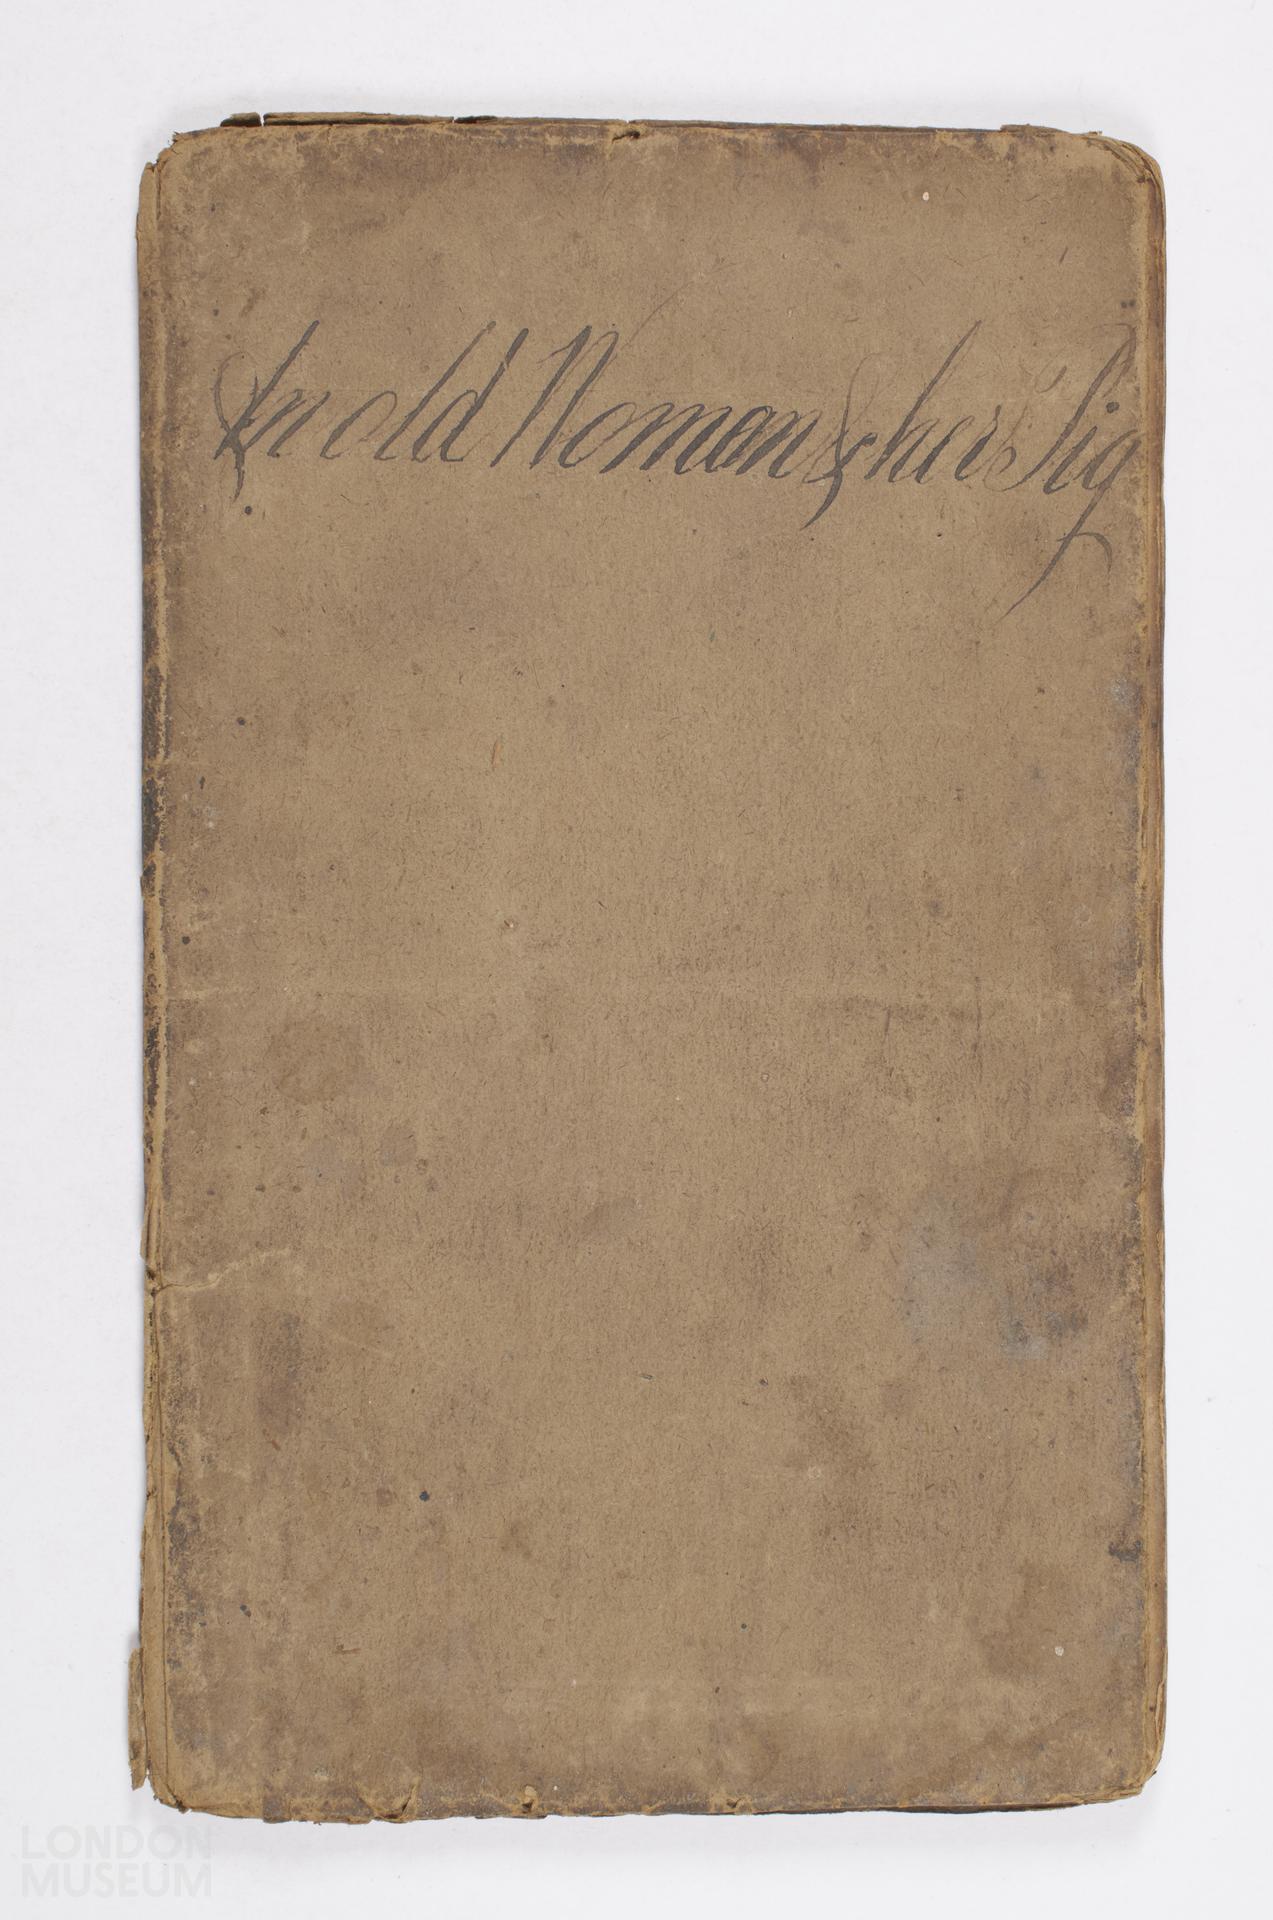 An old Woman & her Pig
LONDON
MUSEUM